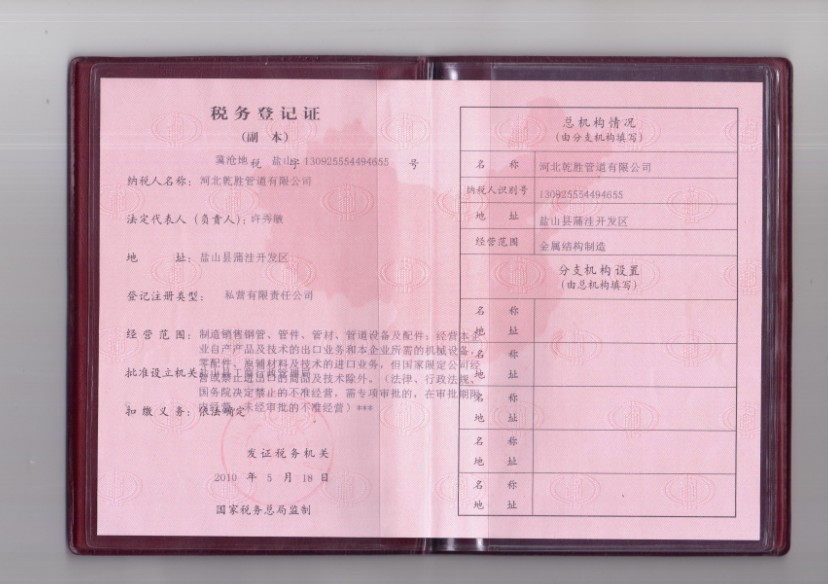 税务登记证
(副 本)
冀沧地 税 盐山 字 130925554494655 号
纳税人名称：河北乾胜管道有限公司
法定代表人（负责人）：许秀敏
地 址：盐山县蒲洼开发区
登记注册类型： 私营有限责任公司
经营范围：制造销售钢管、管件、管材、管道设备及配件；经营本企
业自产产品及技术的出口业务和本企业所需的机械设备、
零配件、原辅材料及技术的进口业务，但国家限定公司经
批准设立机关：盐山县工商行政管理局
营或禁止进出口的商品及技术除外。（法律、行政法规、
国务院决定禁止的不准经营，需专项审批的，在审批期限
扣缴义务：依法确定
内经营，未经审批的不准经营）***
发证税务机关
2010 年 5 月 18 日
国家税务总局监制
总机构情况
(由分支机构填写)
名 称 河北乾胜管道有限公司
纳税人识别号 130925554494655
地 址 盐山县蒲洼开发区
经营范围 金属结构制造
分支机构设置
(由总机构填写)
名 称
地 址
名 称
地 址
名 称
地 址
名 称
地 址
名 称
地 址